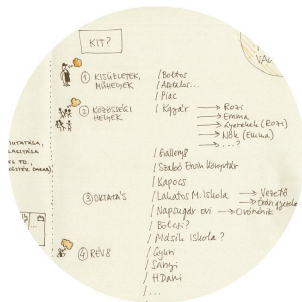 KIT?
① KISÜZLETEK, MŰHELYEK
/ Boltos
/ Asztalos...
/ Piac
② KÖZÖSSÉGI HELYEK
/ Kgyár → Rozi
→ Emma
→ Gyerekek (Rozi)
→ Nők (Emma)
→ ...?
/ Gallery8
/ Szabó Ervin Könyvtár
/ Kapocs
③ OKTATÁS
/ Lakatos M. Iskola → Vezető
/ Napsugár ovi → Óvónénik
/ Bölcsi?
/ Másik Iskola?
④ RÉV8
/ Gyuri
/ Sányi
/ H.Dani
/ ...